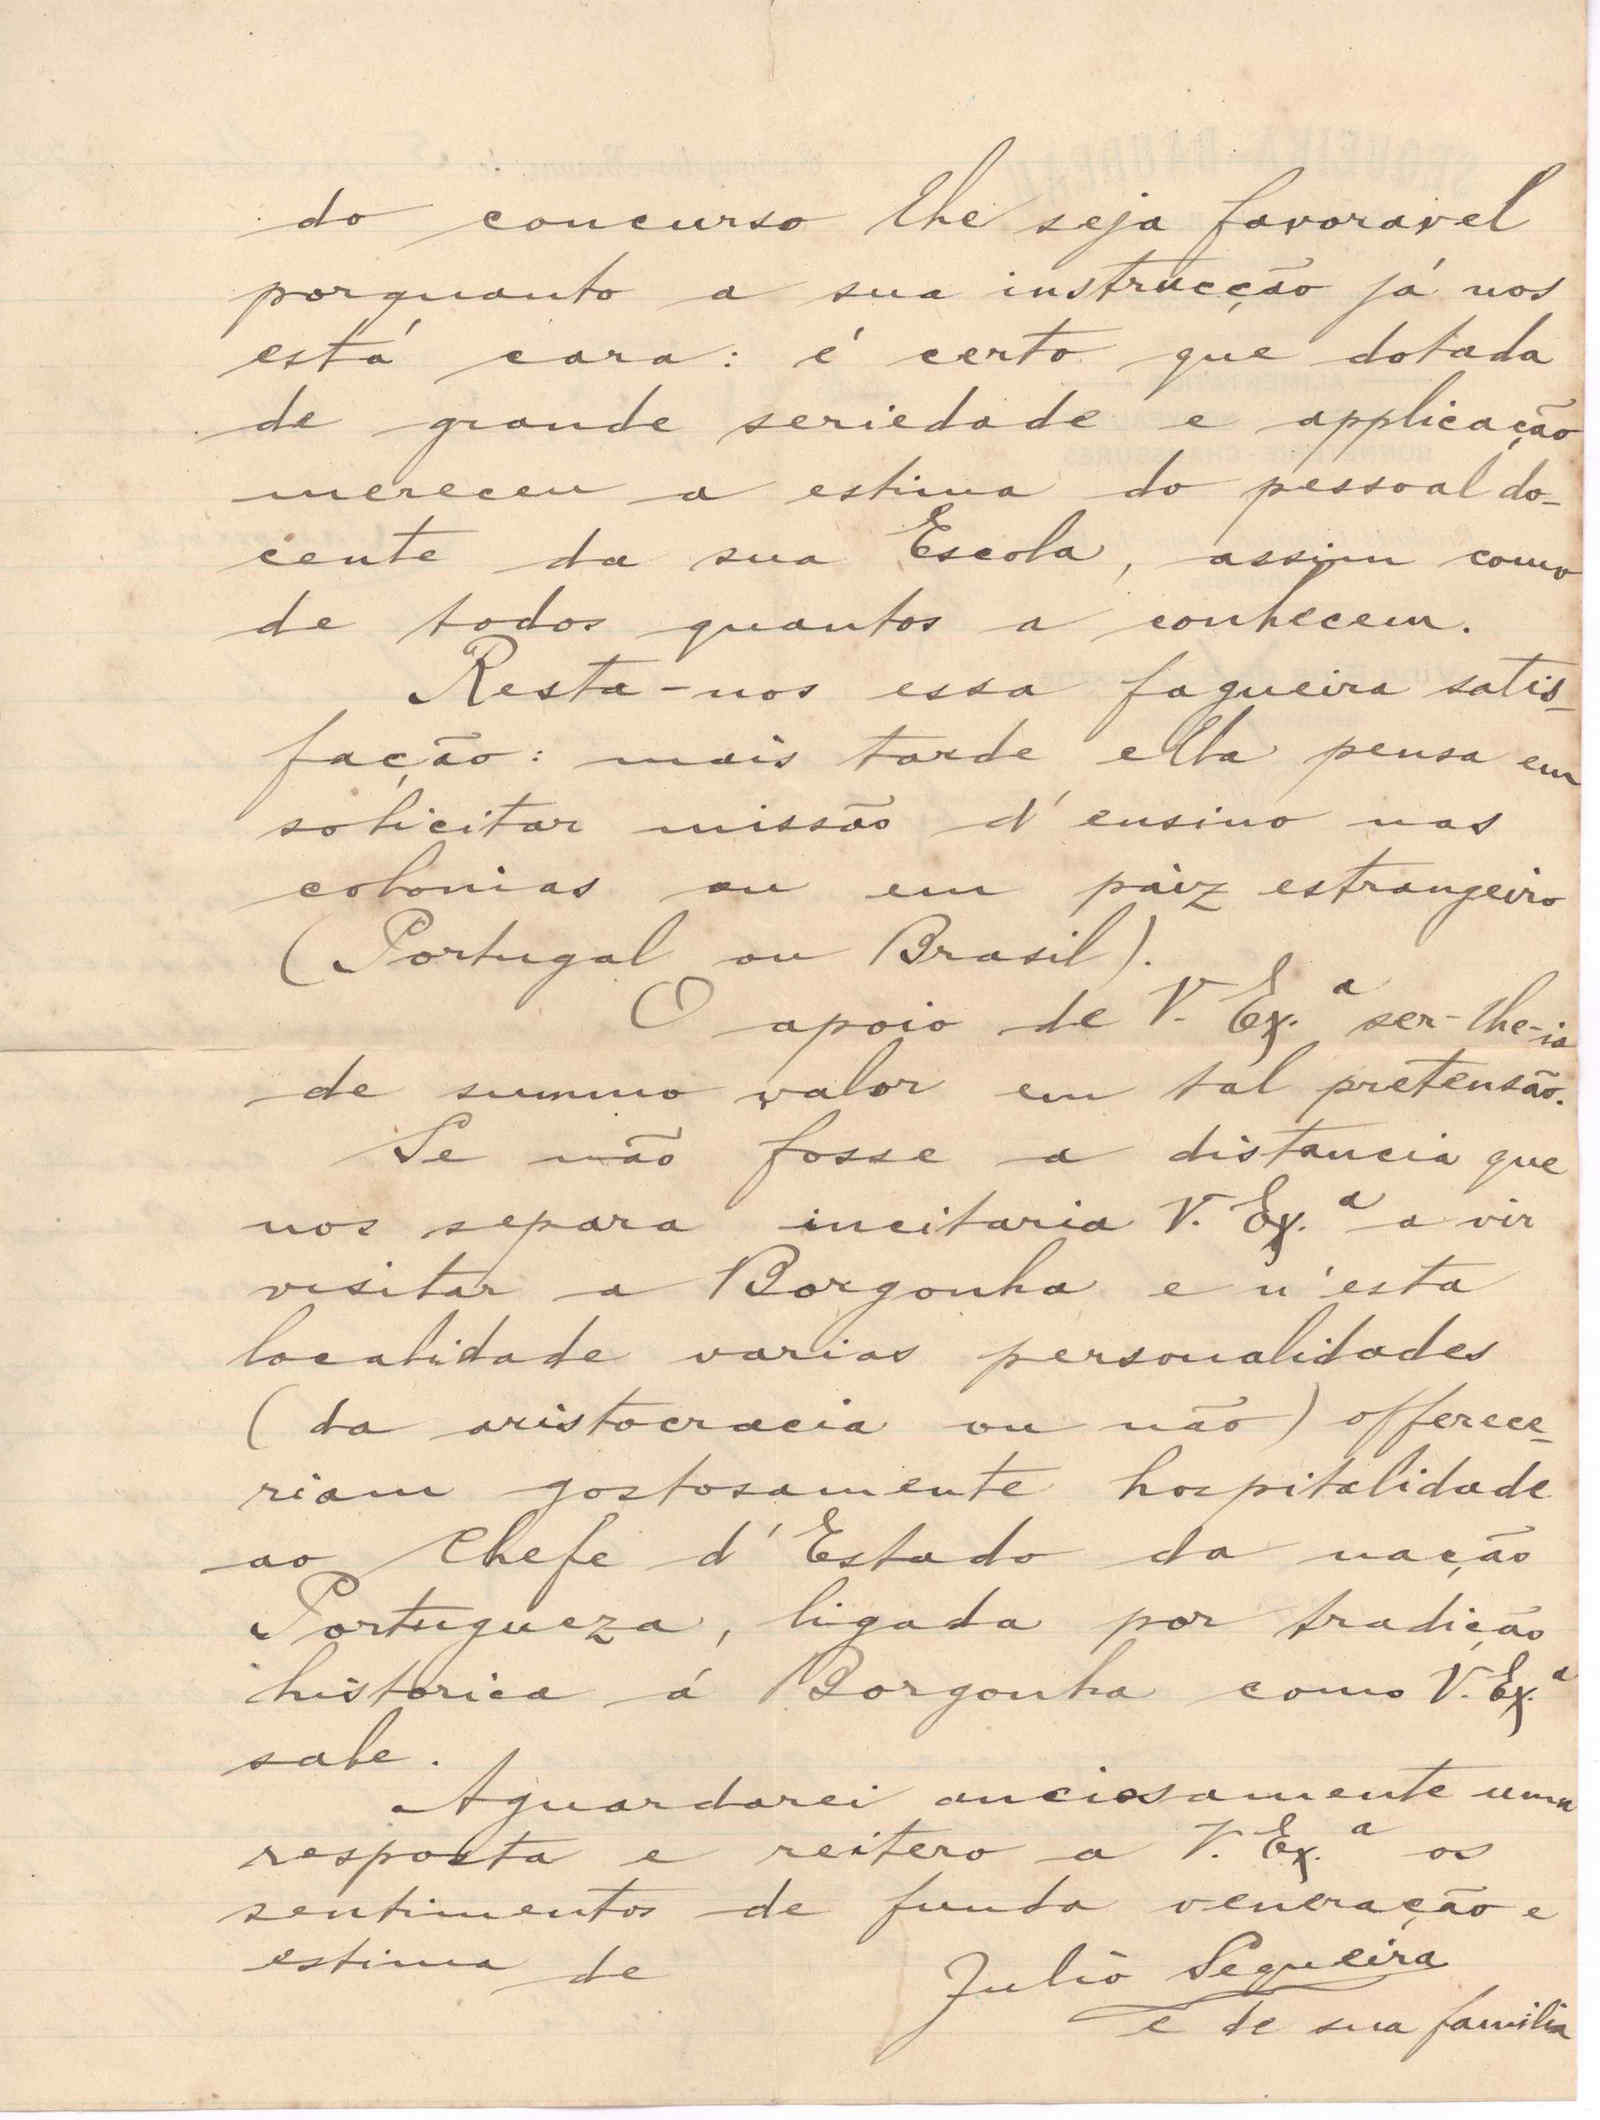 do concurso lhe seja favoravel
porquanto a sua instrucção já nos
está cara: é certo que dotada
de grande seriedade e applicação
mereceu a estima do pessoal do-
cente da sua Escola, assim como
de todos quantos a conhecem.
Resta-nos essa fagueira satis-
fação: mais tarde ella pensa em
solicitar missão d'ensino nas
colonias ou em paiz estrangeiro
(Portugal ou Brasil).
O apoio de V. Ex.ª ser-lhe-ia
de summo valor em tal pretensão.
Se não fosse a distancia que
nos separa incitaria V. Ex.ª a vir
visitar a Borgonha e n'esta
localidade varias personalidades
(da aristocracia ou não) offerece-
riam gostosamente hospitalidade
ao Chefe d'Estado da nação
Portugueza, ligada por tradição
historica á Borgonha como V. Ex.ª
sabe.
Aguardarei anciosamente uma
resposta e reitero a V. Ex.ª os
sentimentos de funda veneração e
estima de
Julio Sequeira
e de sua familia